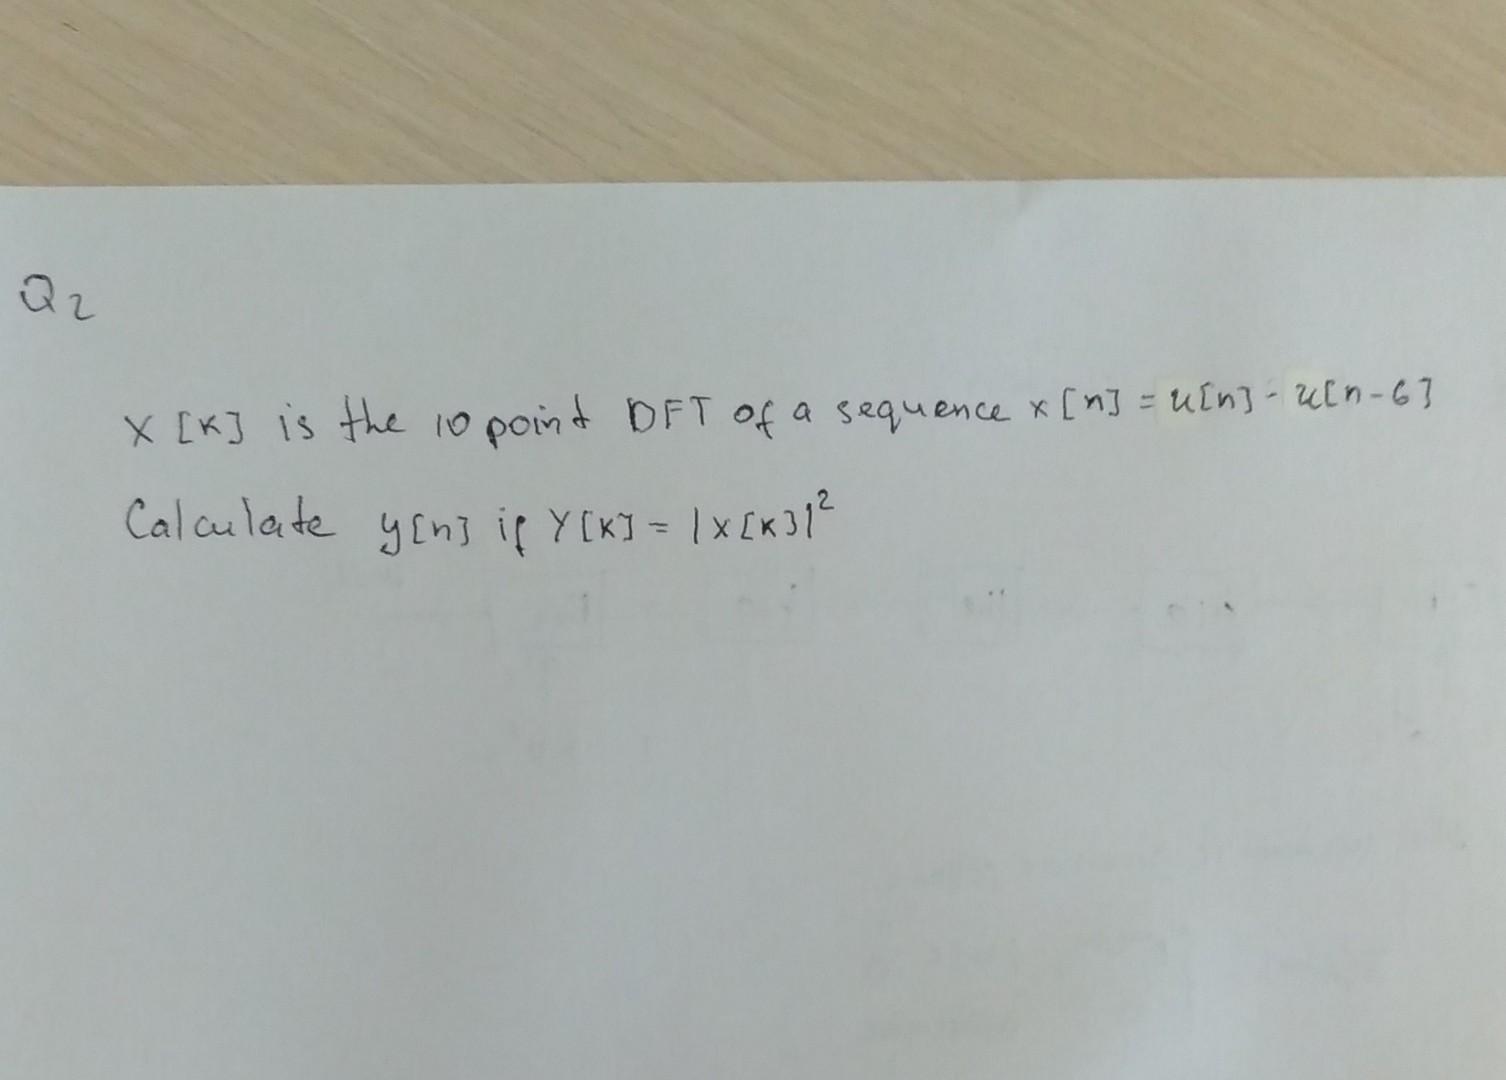 Q2
X[K] is the 10 point DFT of a sequence x[n] = u[n] - u[n-6]
Calculate y[n] if Y[K] = |X[K]|²